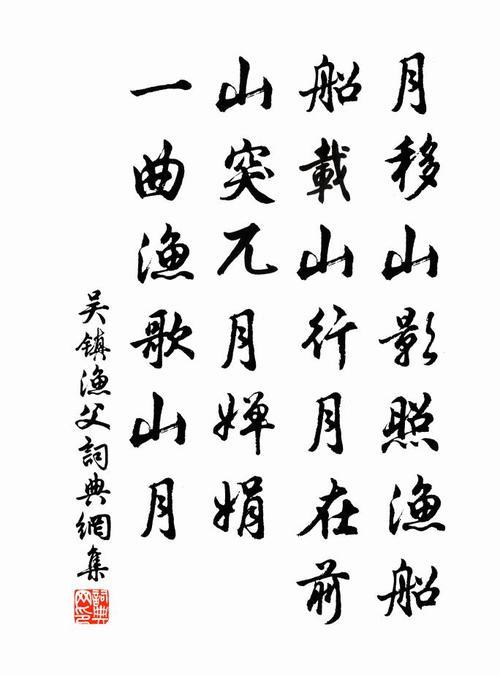 月移山影照漁船
船載山行月在前
山突兀月嬋娟
一曲漁歌山月
吴鎮漁父詞典網集
詞典网印